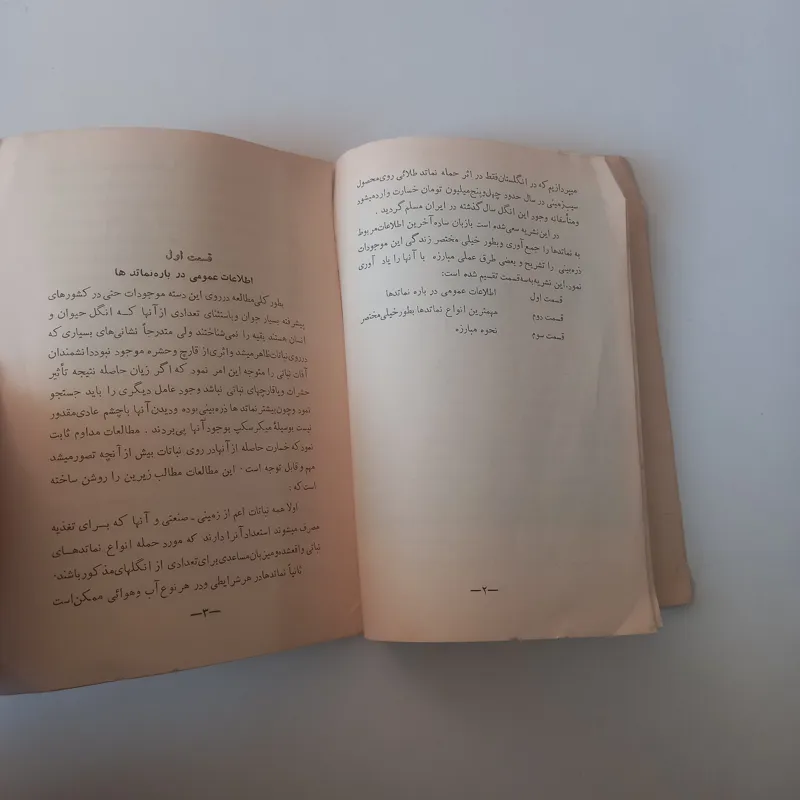 میپردازیم که در انگلستان فقط در اثر حمله نماتد طلائی روی محصول
سیب زمینی در سال حدود چهل و پنج میلیون تومان خسارت وارد میشود
ومتأسفانه وجود این انگل سال گذشته در ایران مسلم گردید .
در این نشریه سعی شده است بازبان ساده آخرین اطلاعات مربوط
به نماتدها را جمع آوری وبطور خیلی مختصر زندگی این موجودات
ذره بینی را تشریح و بعضی طرق عملی مبارزه با آنها را یاد آوری
نمود، این نشریه به سه قسمت تقسیم شده است:
قسمت اول اطلاعات عمومی در باره نماتدها
قسمت دوم مهمترین انواع نماتدها بطور خیلی مختصر
قسمت سوم نحوه مبارزه
—۲—
قسمت اول
اطلاعات عمومی در باره نماتد ها
بطور کلی مطالعه در روی این دسته موجودات حتی در کشورهای
پیشرفته بسیار جوان و باستثنای تعدادی از آنها که انگل حیوان و
انسان هستند بقیه را نمی‌شناختند ولی متدرجاً نشانی‌های بسیاری که
در روی نباتات ظاهر میشد و اثری از قارچ و حشره موجود نبود دانشمندان
آفات نباتی را متوجه این امر نمود که اگر زیان حاصله نتیجه تأثیر
حشرات و یا قارچهای نباتی نباشد وجود عامل دیگری را باید جستجو
نمود و چون بیشتر نماتد ها ذره‌بینی بوده و دیدن آنها باچشم عادی مقدور
نیست بوسیلهٔ میکرسکپ بوجود آنها پی بردند . مطالعات مداوم ثابت
نمود که خسارت حاصله از آنها در روی نباتات بیش از آنچه تصور میشد
مهم و قابل توجه است . این مطالعات مطالب زیرین را روشن ساخته
است که :
اولا همه نباتات اعم از زمینی ـ صنعتی و آنها که برای تغذیه
مصرف میشوند استعداد آنرا دارند که مورد حمله انواع نماتدهای
نباتی واقع شده و میزبان مساعدی برای تعدادی از انگلهای مذکور باشند.
ثانیاً نماتدها در هر شرایطی و در هر نوع آب وهوائی ممکن است
—۳—